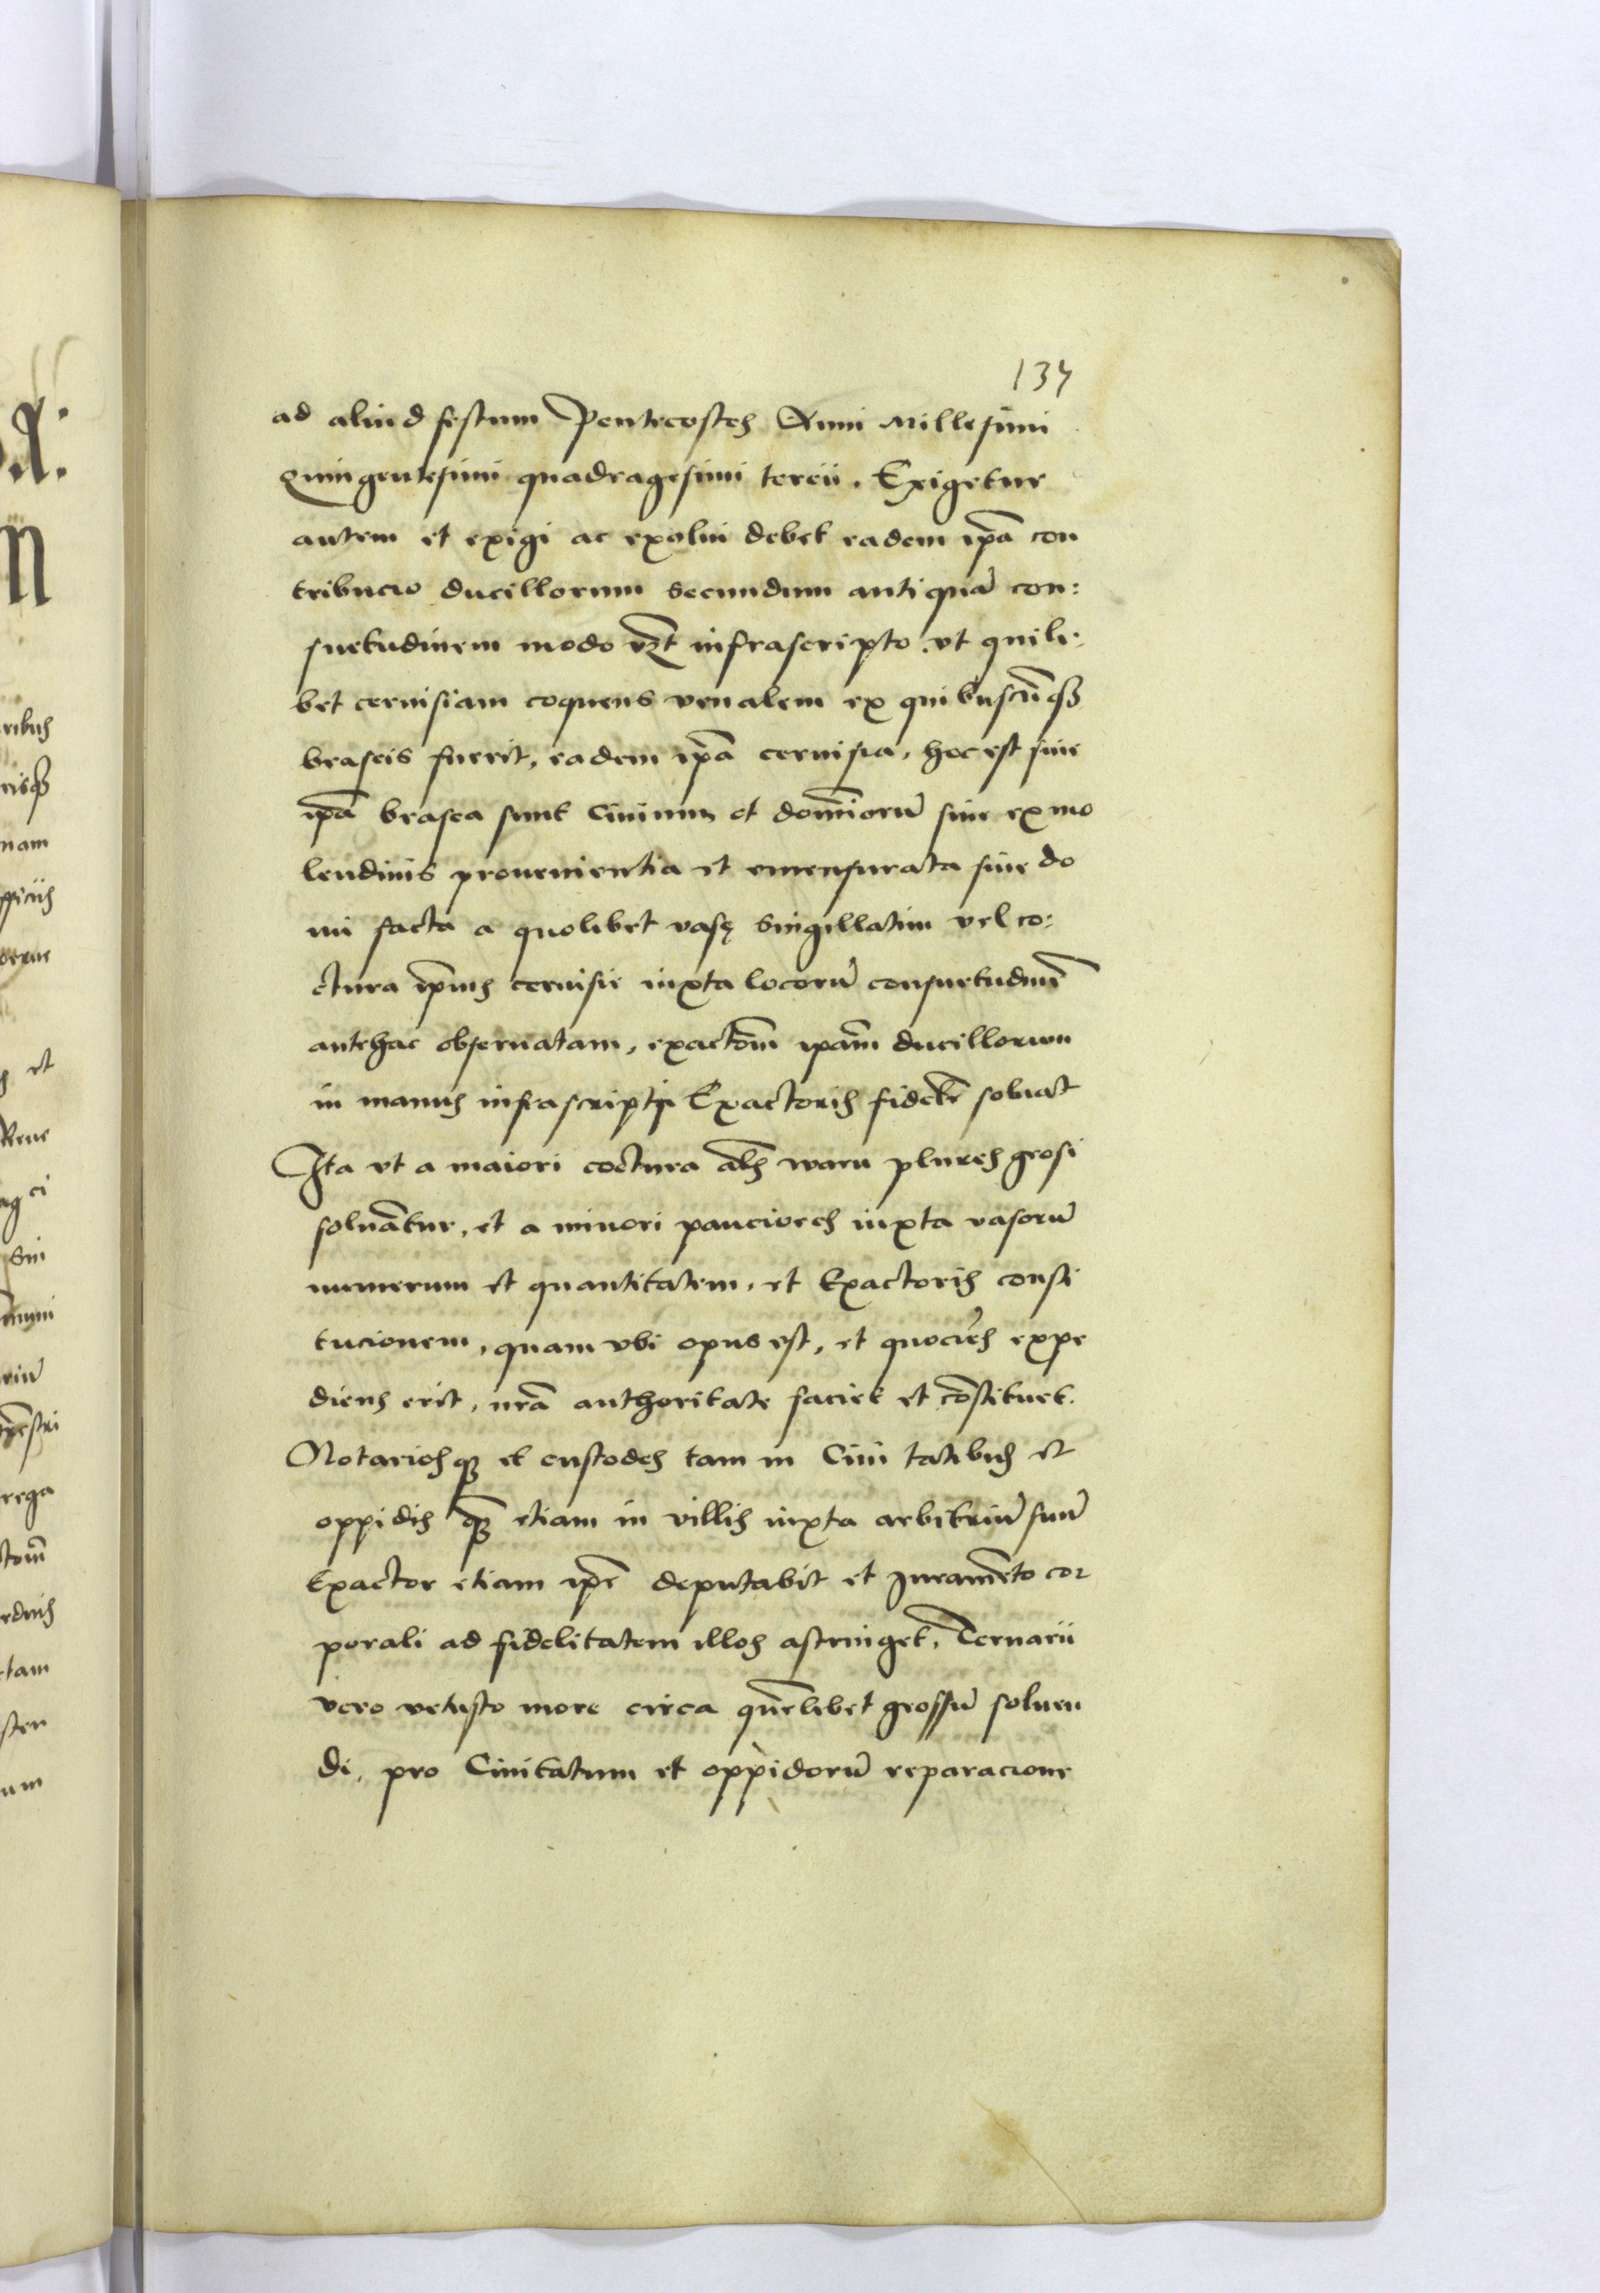 137
ad aliud festum Pentecostes Anni Millesimi
Quingentesimi quadragesimi tercii. Exigetur
autem et exigi ac exolui debet eadem ip̄a con
tribucio ducillorum secundum antiquā con:
suetudinem modo vz̄t infrascripto. vt quili:
bet ceruisiam coquens venalem ex quibuscūqȝ
braseis fuerit, eadem ip̄a ceruisia, hoc est siue
ip̄a brasea sunt Ciuium et domīorū siue ex mo
lendinis prouenientia et emensurata siue do
mi facta a quolibet vasę singillatim vel co:
ctura ip̄ius ceruisie iuxta locorū consuetudinē
antehac obseruatam, exactōm ipam̄ ducillorum
in manus infrascripti Exactoris fidelr̄ soluat
Ita vt a maiori coctura al̄s waru plures grosi
soluātur, et a minori pauciores iuxta vasorū
numerum et quantitatem, et Exactoris consti
tucionem, quam vbi opus est, et quociēs expe
diens erit, nr̄a authoritate faciet et cōstituet.
Notariosqȝ et custodes tam in Ciui tatibus et
oppidis qȝ etiam in villis iuxta arbitriū suū
Exactor etiam ip̄e deputabit et Iuramēto cor
porali ad fidelitatem illos astringet, Ternarii
vero vetusto more circa quēlibet grossū soluen
di, pro Ciuitatum et oppidorū reparacione
ribus
risqȝ
nam
et
ci
sin
riū
rega
ctōm
tam
ster
um